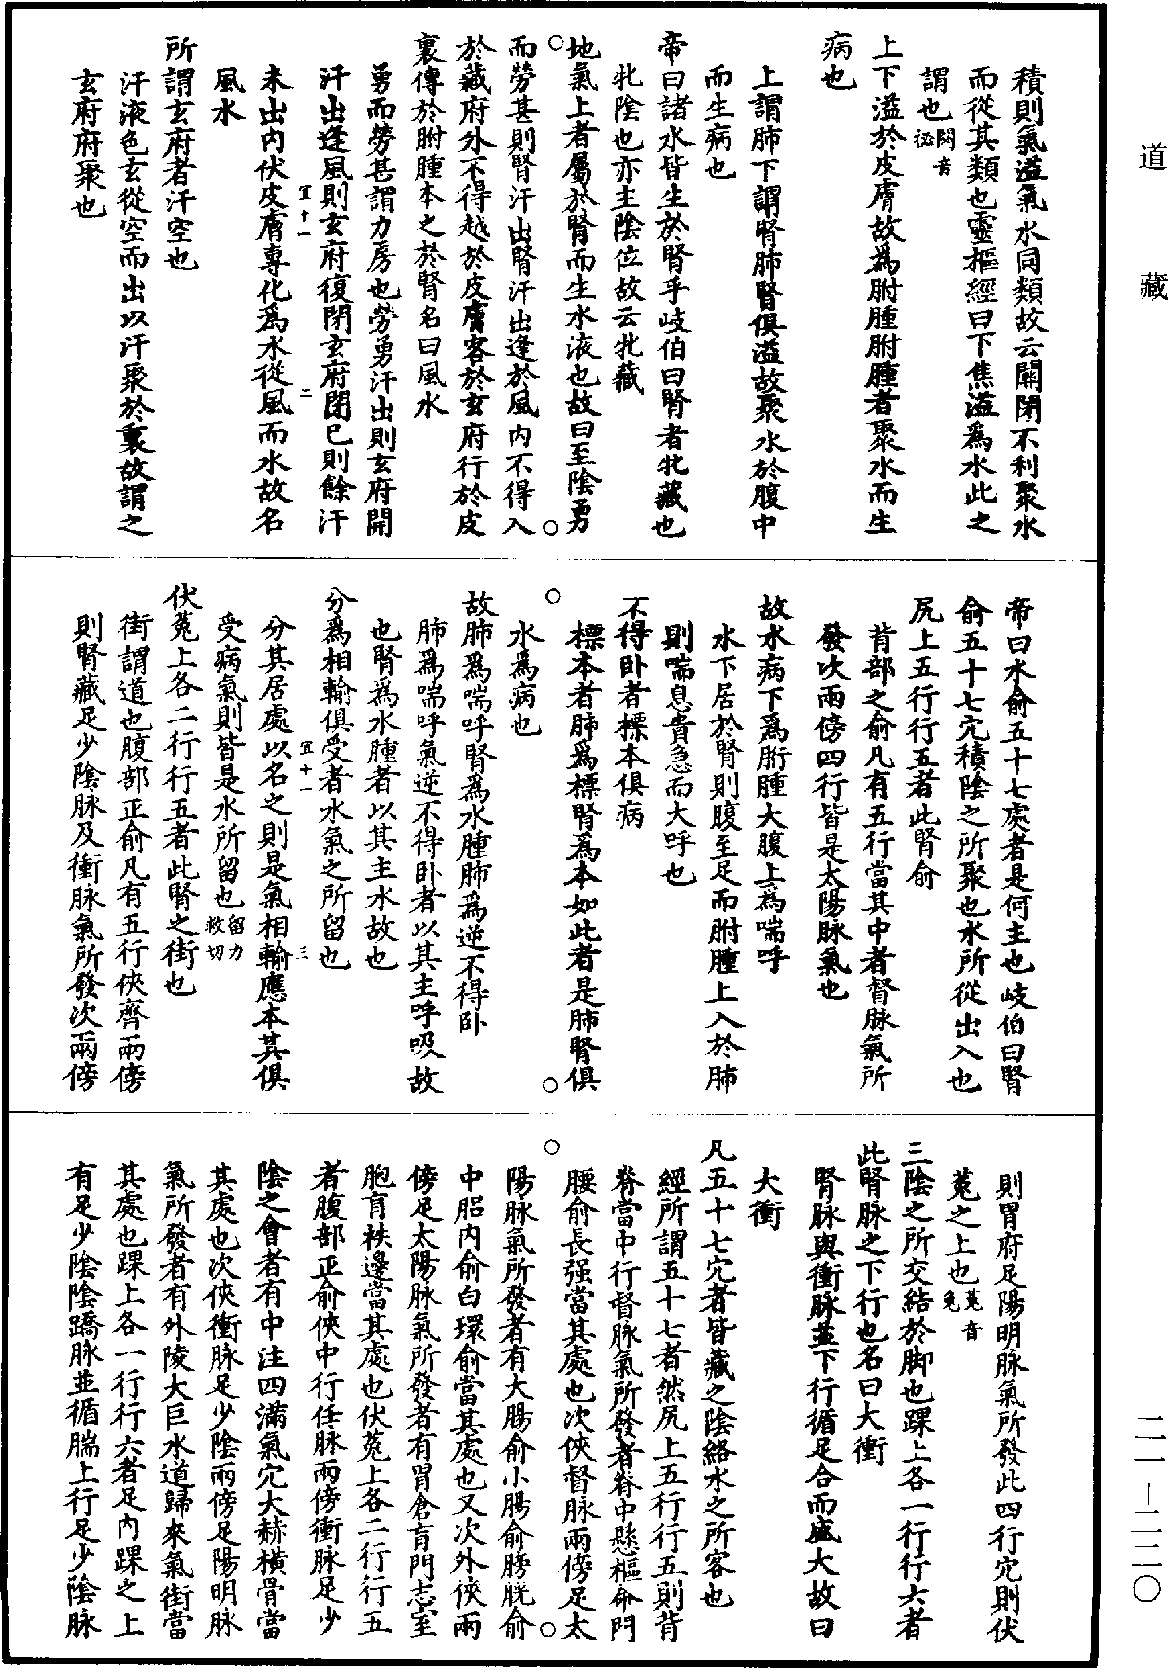 道藏
積則氣溢氣水同類故云關閉不利聚水
而從其類也靈樞經曰下焦溢爲水此之
謂也閟音祕
上下溢於皮膚故爲胕腫胕腫者聚水而生
病也
上謂肺下謂腎肺腎俱溢故聚水於腹中
而生病也
帝曰諸水皆生於腎乎岐伯曰腎者牝藏也
牝陰也亦主陰位故云牝藏
地氣上者屬於腎而生水液也故曰至陰勇
而勞甚則腎汗出腎汗出逢於風內不得入
於藏府外不得越於皮膚客於玄府行於皮
裏傳於胕腫本之於腎名曰風水
勇而勞甚謂力房也勞勇汗出則玄府開
汗出逢風則玄府復閉玄府閉已則餘汗
宜十一 二
未出內伏皮膚專化爲水從風而水故名
風水
所謂玄府者汗空也
汗液色玄從空而出以汗聚於裏故謂之
玄府府聚也
帝曰水俞五十七處者是何主也岐伯曰腎
俞五十七穴積陰之所聚也水所從出入也
尻上五行行五者此腎俞
背部之俞凡有五行當其中者督脉氣所
發次兩傍四行皆是太陽脉氣也
故水病下爲胻腫大腹上爲喘呼
水下居於腎則腹至足而胕腫上入於肺
則喘息賁急而大呼也
不得卧者標本俱病
標本者肺爲標腎爲本如此者是肺腎俱
水爲病也
故肺爲喘呼腎爲水腫肺爲逆不得卧
肺爲喘呼氣逆不得卧者以其主呼吸故
也腎爲水腫者以其主水故也
分爲相輸俱受者水氣之所留也
宜十一 三
分其居處以名之則是氣相輸應本其俱
受病氣則皆是水所留也留力救切
伏菟上各二行行五者此腎之街也
街謂道也腹部正俞凡有五行俠齊兩傍
則腎藏足少陰脉及衝脉氣所發次兩傍
則胃府足陽明脉氣所發此四行穴則伏
菟之上也菟音兔
三陰之所交結於脚也踝上各一行行六者
此腎脉之下行也名曰大衝
腎脉與衝脉並下行循足合而盛大故曰
大衝
凡五十七穴者皆藏之陰絡水之所客也
經所謂五十七者然尻上五行行五則背
脊當中行督脉氣所發者脊中懸樞命門
腰俞長强當其處也次俠督脉兩傍足太
陽脉氣所發者有大腸俞小腸俞膀胱俞
中䏚內俞白環俞當其處也又次外俠兩
傍足太陽脉氣所發者有胃倉肓門志室
胞肓秩邊當其處也伏菟上各二行行五
者腹部正俞俠中行任脉兩傍衝脉足少
陰之會者有中注四滿氣穴大赫横骨當
其處也次俠衝脉足少陰兩傍足陽明脉
氣所發者有外陵大巨水道歸來氣街當
其處也踝上各一行行六者足內踝之上
有足少陰陰蹻脉並循腨上行足少陰脉
二一—二二〇